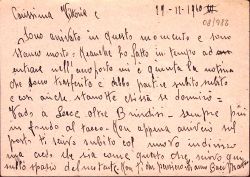 Carissima Vittoria e 29-11-1940
08/988
Sono arrivato in questo momento e sono
stanco morto; neanche ho fatto in tempo ad
entrare nell'aeroporto mi è giunta la notizia
che sono trasferito e debbo partire subito subito
e così anche stanotte chissà se dormirò.
Vado a Lecce oltre Brindisi sempre più
in fondo al tacco. Non appena arriverò sul
posto ti invio subito col nuovo indirizzo
ma credo che sia come questo che scrivo qui
sullo spazio del mittente. Non ti